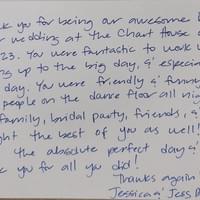 k you for being our awesome
r wedding at the Chart House
23. You were fantastic to work w
ng up to the big day, & especi
day. You were friendly & funny
people on the dance floor all ni
family, bridal party, friends, &
ght the best of you as well!
the absolute perfect day &
k you for all you did!
Thanks again
Jessica & Jess